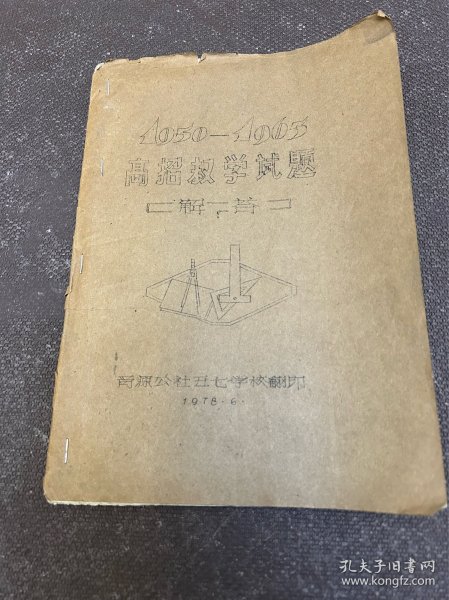 1950—1965
高招数学试题
解答
南源公社五七学校翻印
1978.6.
孔夫子旧书网
www.kongfz.com